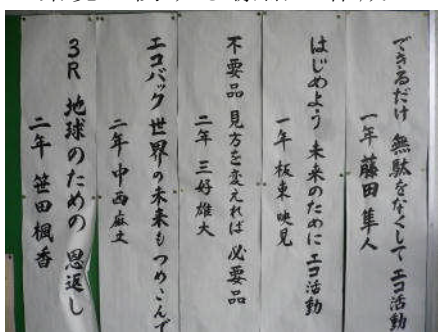 できるだけ 無駄をなくして エコ活動
一年 藤田 隼人
はじめよう 未来のために エコ活動
一年 板東 映見
不要品 見方を変えれば 必要品
二年 三好雄大
エコバック 世界の未来も つめこんで
二年 中西麻文
3R 地球のための 恩返し
二年 笹田楓香